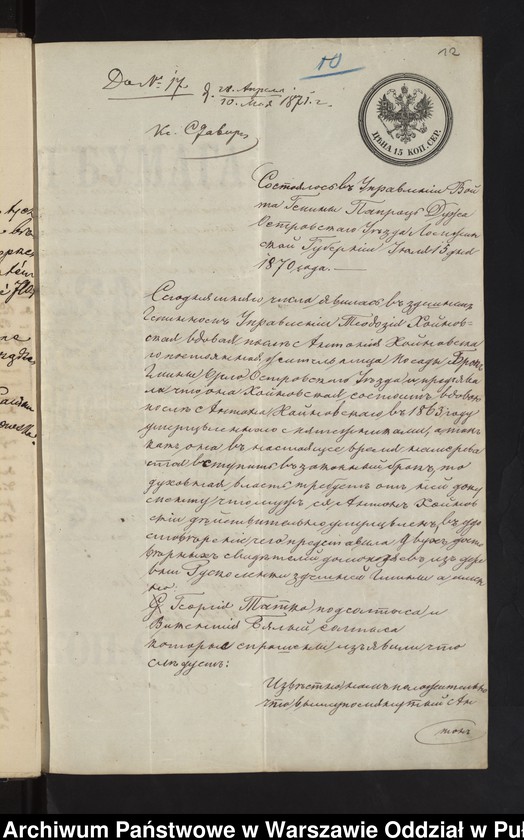 10
12
До № 17 д. 28 Апреля
10 Мая 1871 г.
ЦѢНА 15 КОП. СЕР.
Состоялось въ Управленіи Вой
та Гмины Папроць Дужа
Островскаго Уѣзда Ломжин
ской Губерніи Іюля 15 дня
1870 года.
Сегодняшняго числа явилась въ здешнимъ
Гминномъ Управленіи Теодозія Хойнов-
ская вдова послѣ Антонія Хойновска
го постоянная жительница Посады Брокъ
Гмины Орло Островскаго Уѣзда и предъяви
ла что она Хойновская состоитъ вдовою
послѣ Антона Хойновскаго въ 1863 году
умерщвленнаго мятежниками, а такъ
какъ она въ настоящее время намерева
ется вступить въ законный бракъ, то
духовная власть требуетъ отъ ней доку
мента что мужъ ея Антонъ Хойнов
скій дѣйствительно умерщвленъ, въ удо
стоверскій чего представила двухъ досто
верныхъ свидѣтелей домохозяевъ изъ дере
вни здешней Гмины а имен
но:
Георгія Татко подсолтыса и
Бялый солтыса
которые спрошены изъявили что
слѣдуетъ:
Извѣстно намъ положительно
что вышупомянутый Ан
тонъ
Archiwum Państwowe w Warszawie Oddział w Puł